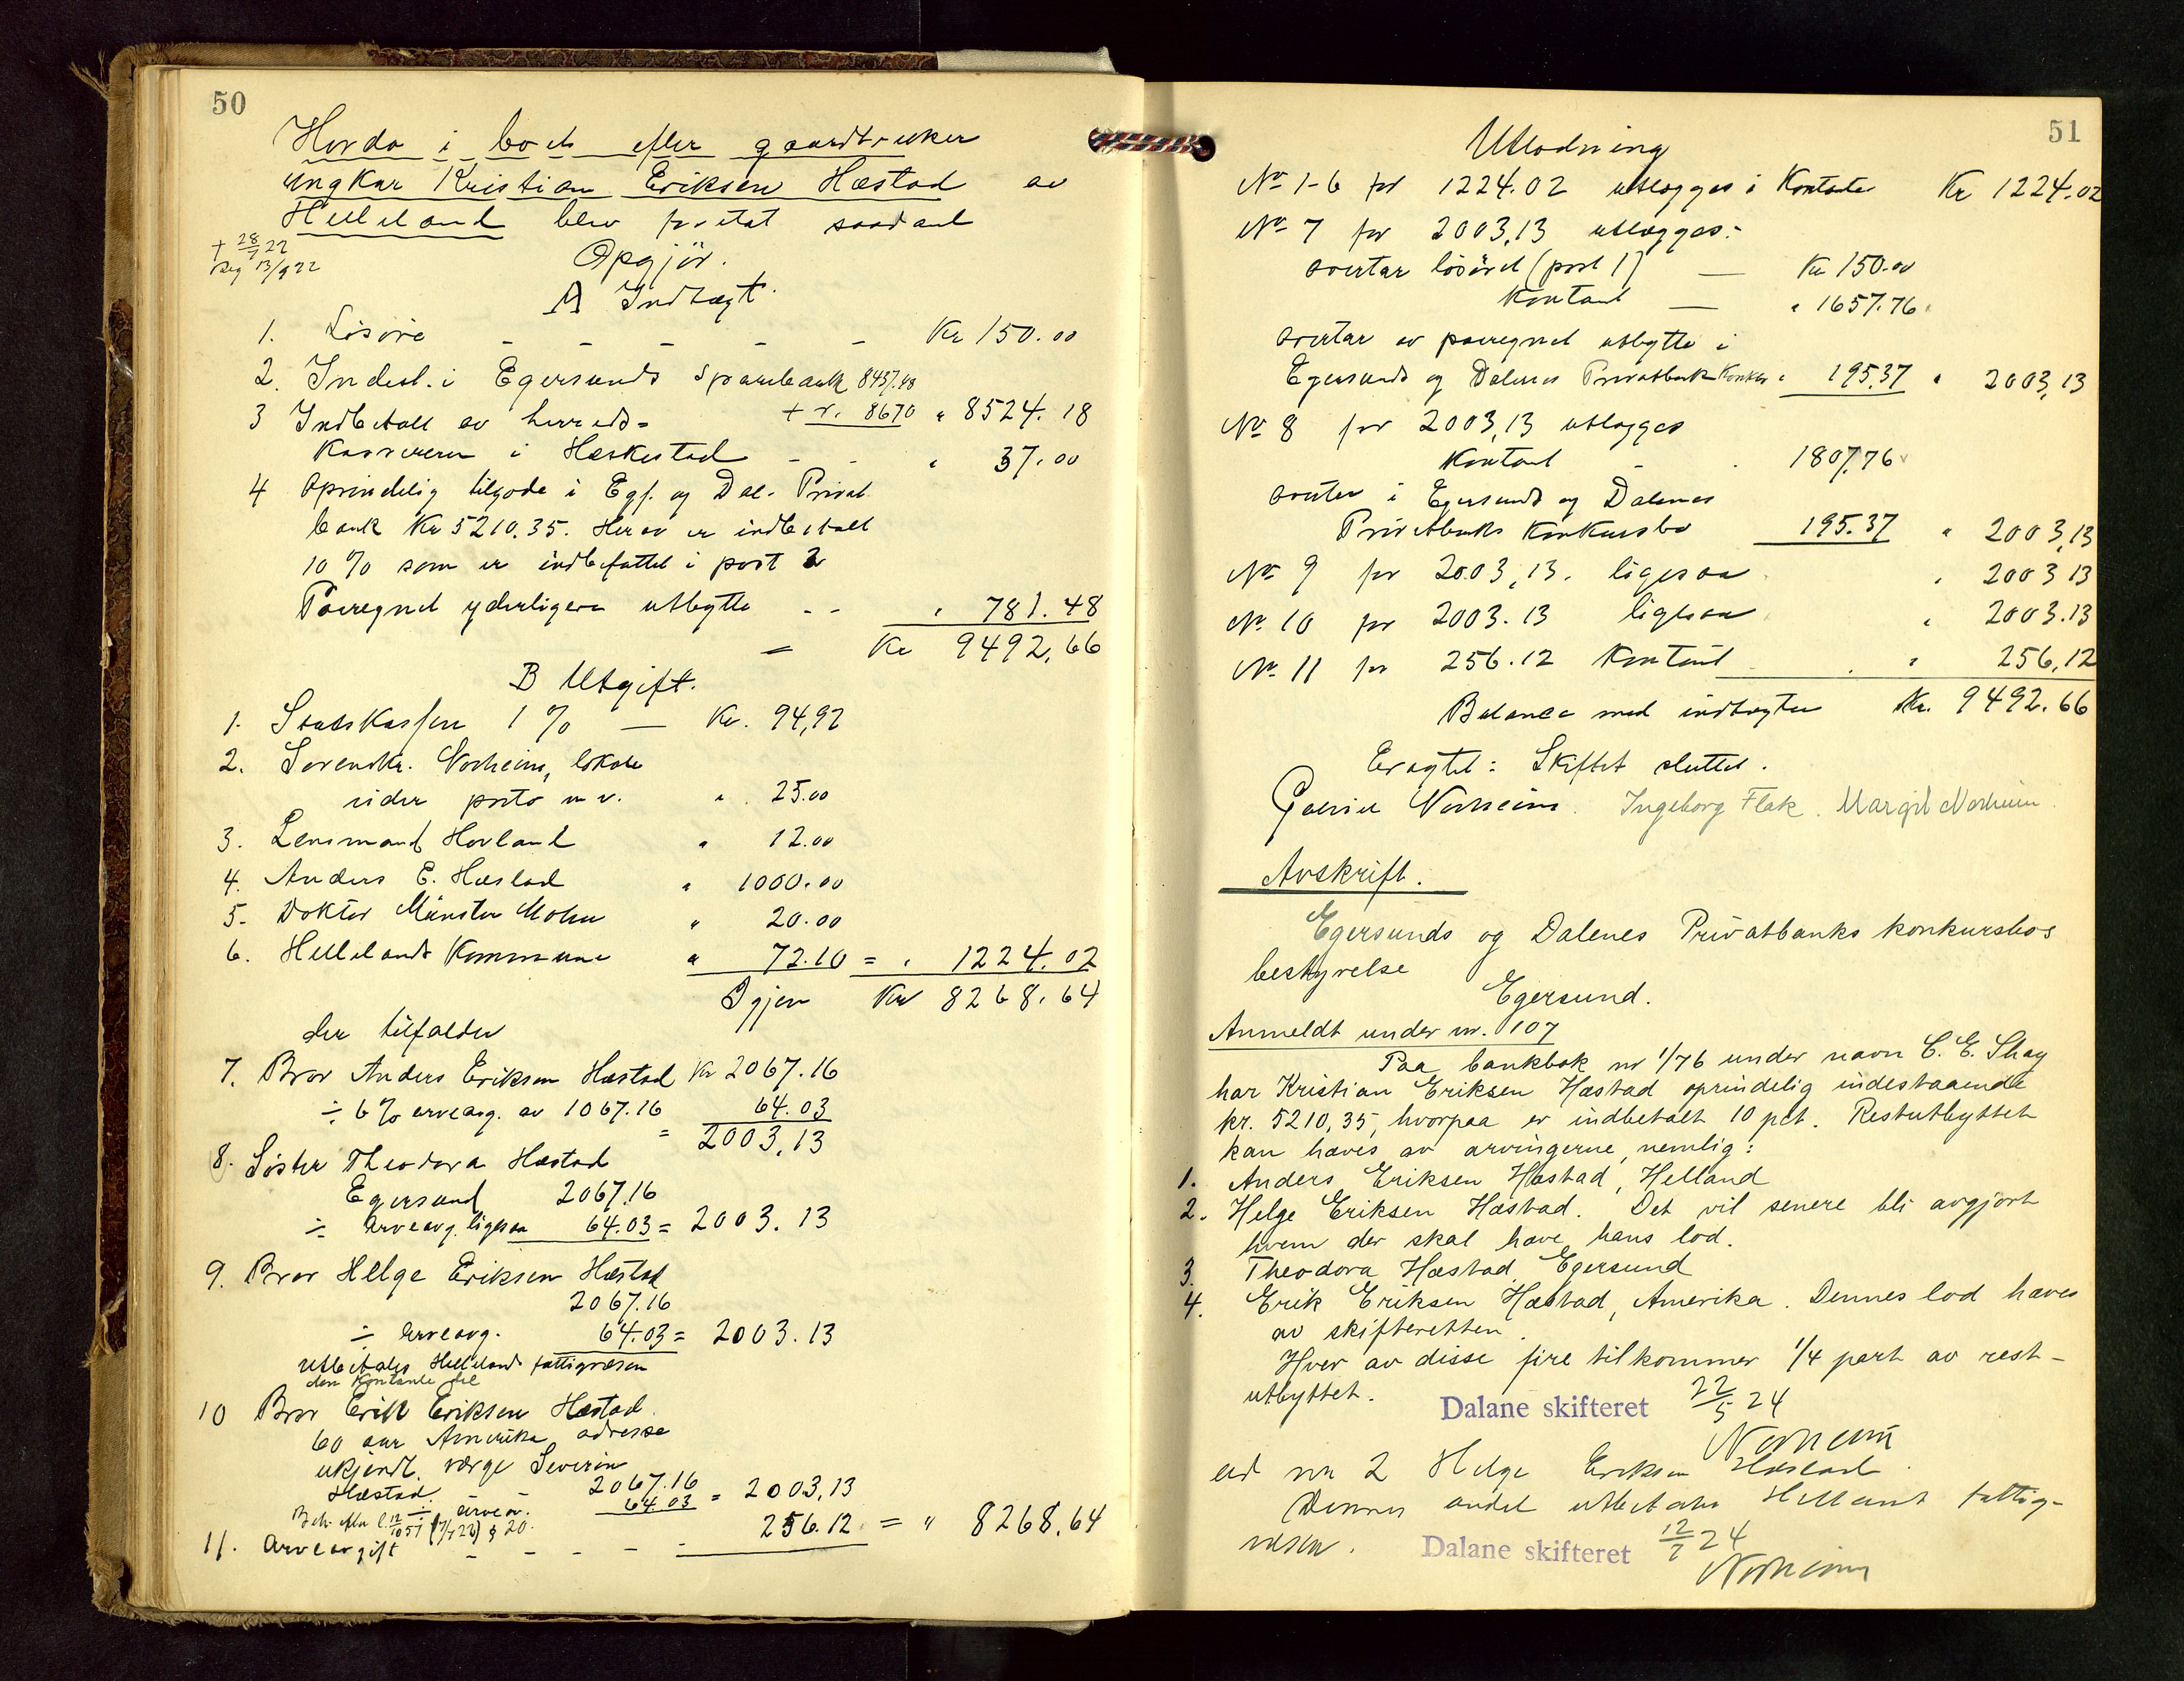 50
Hvorda i boet efter gaardbruker
ungkar Kristian Eriksen Hæstad av
Helleland blev foretat saadant
+ 28/7 22
reg 13/9 22
Opgjör.
A Indtægt.
1. Lösöre - - - - - Kr 150.00
2. Indest. i Egersunds Sparebank 8437.48
+ r. 86.70 " 8524.18
3 Indbetalt av herreds-
kassereren i Heskestad - - " 37.00
4 Oprindelig tilgode i Egs. og Dal. Privat
bank Kr 5210.35. Herav er indbetalt
10 % som er indbefattet i post 2
Paaregnet yderligere utbytte - - " 781.48
= Kr 9492,66
B Utgift.
1. Statskassen 1 % — Kr. 94,92
2. Sorenskr. Norheim, lokale
rider porto m v. " 25.00
3. Lensmand Hovland " 12.00
4. Anders E. Hæstad " 1000.00
5. Doktor Münster Mohn " 20.00
6. Hellelands Kommune " 72.10 = " 1224.02
Igjen Kr 8268.64
der tilfalder
7. Bror Anders Eriksen Hæstad Kr 2067.16
÷ 6% arveavg. av 1067.16 64.03
= 2003,13
8. Söster Theodora Hæstad
Egersund 2067.16
÷ Arveavg. ligesaa 64.03 = 2003.13
9. Bror Helge Eriksen Hæstad
2067.16
÷ Arveavg. 64.03 = 2003.13
Utbetales Hellelands fattigvæsen
den kontante del
10 Bror Erik Eriksen Hæstad
60 aar Amerika, adresse
ukjendt. værge Severin
Hæstad. 2067.16
÷ Arvea. 64.03 = 2003,13
11. Arveavgift - - - - 256.12 = " 8268.64
51
Utlodning
No 1-6 for 1224.02 utlægges i Kontanter Kr 1224.02
No 7 for 2003,13 utlægges:
overtar lösöret (post 1) — Kr 150.00
Kontant — " 1657.76
overtar av paaregnet utbytte i
Egersunds og Dalenes Privatbank Konkurs " 195.37 " 2003,13
No 8 for 2003,13 utlægges
Kontant - 1807,76
overtar i Egersunds og Dalenes
Privatbanks Konkursbo 195.37 " 2003,13
No 9 for 2003,13. ligesaa " 2003 13
No 10 for 2003.13 ligesaa " 2003.13
No 11 for 256.12 Kontant " 256,12
Balance med indtægten Kr. 9492.66
Eragtet: Skiftet sluttet.
Norheim. Ingeborg Flak. Margit Norheim
Avskrift.
Egersunds og Dalenes Privatbanks konkursbos
bestyrelse
Egersund.
Anmeldt under nr. 107
Paa bankbok nr 1/76 under navn C. E. Shag
har Kristian Eriksen Hæstad oprindelig indestaaende
kr. 5210,35, hvorpaa er indbetalt 10 pct. Restutbyttet
kan hæves av arvingerne, nemlig:
1. Anders Eriksen Hæstad, Helland
2. Helge Eriksen Hæstad. Det vil senere bli avgjort
hvem der skal hæve hans lod.
3. Theodora Hæstad, Egersund
4. Erik Eriksen Hæstad, Amerika. Dennes lod hæves
av skifteretten.
Hver av disse fire tilkommer 1/4 part av rest-
utbyttet.
Dalane skifteret 22/5 24
Norheim
ad nr 2 Helge Eriksen Hæstad.
Dennes andel utbetales Helland fattig-
væsen.
Dalane skifteret 12/7 24
Norheim